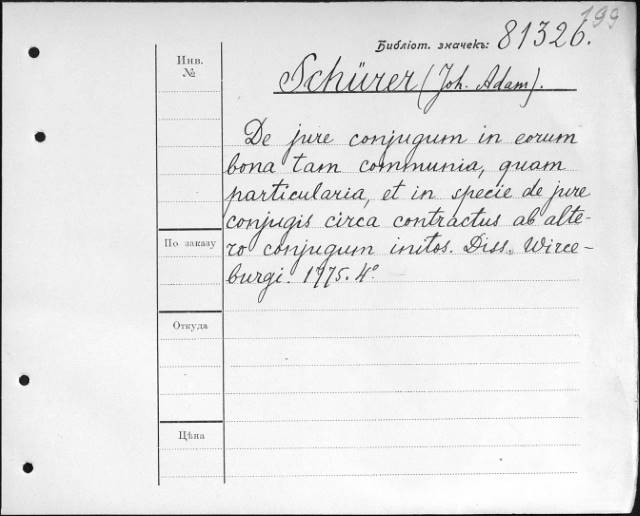 199
Библіот. значекъ: 81326.
Инв.
№
Schürer (Joh. Adam).
De jure conjugum in eorum
bona tam communia, quam
particularia, et in specie de jure
conjugis circa contractus ab alte-
ro conjugum initos. Diss. Wirce-
burgi. 1775. 4°
По заказу
Откуда
Цѣна